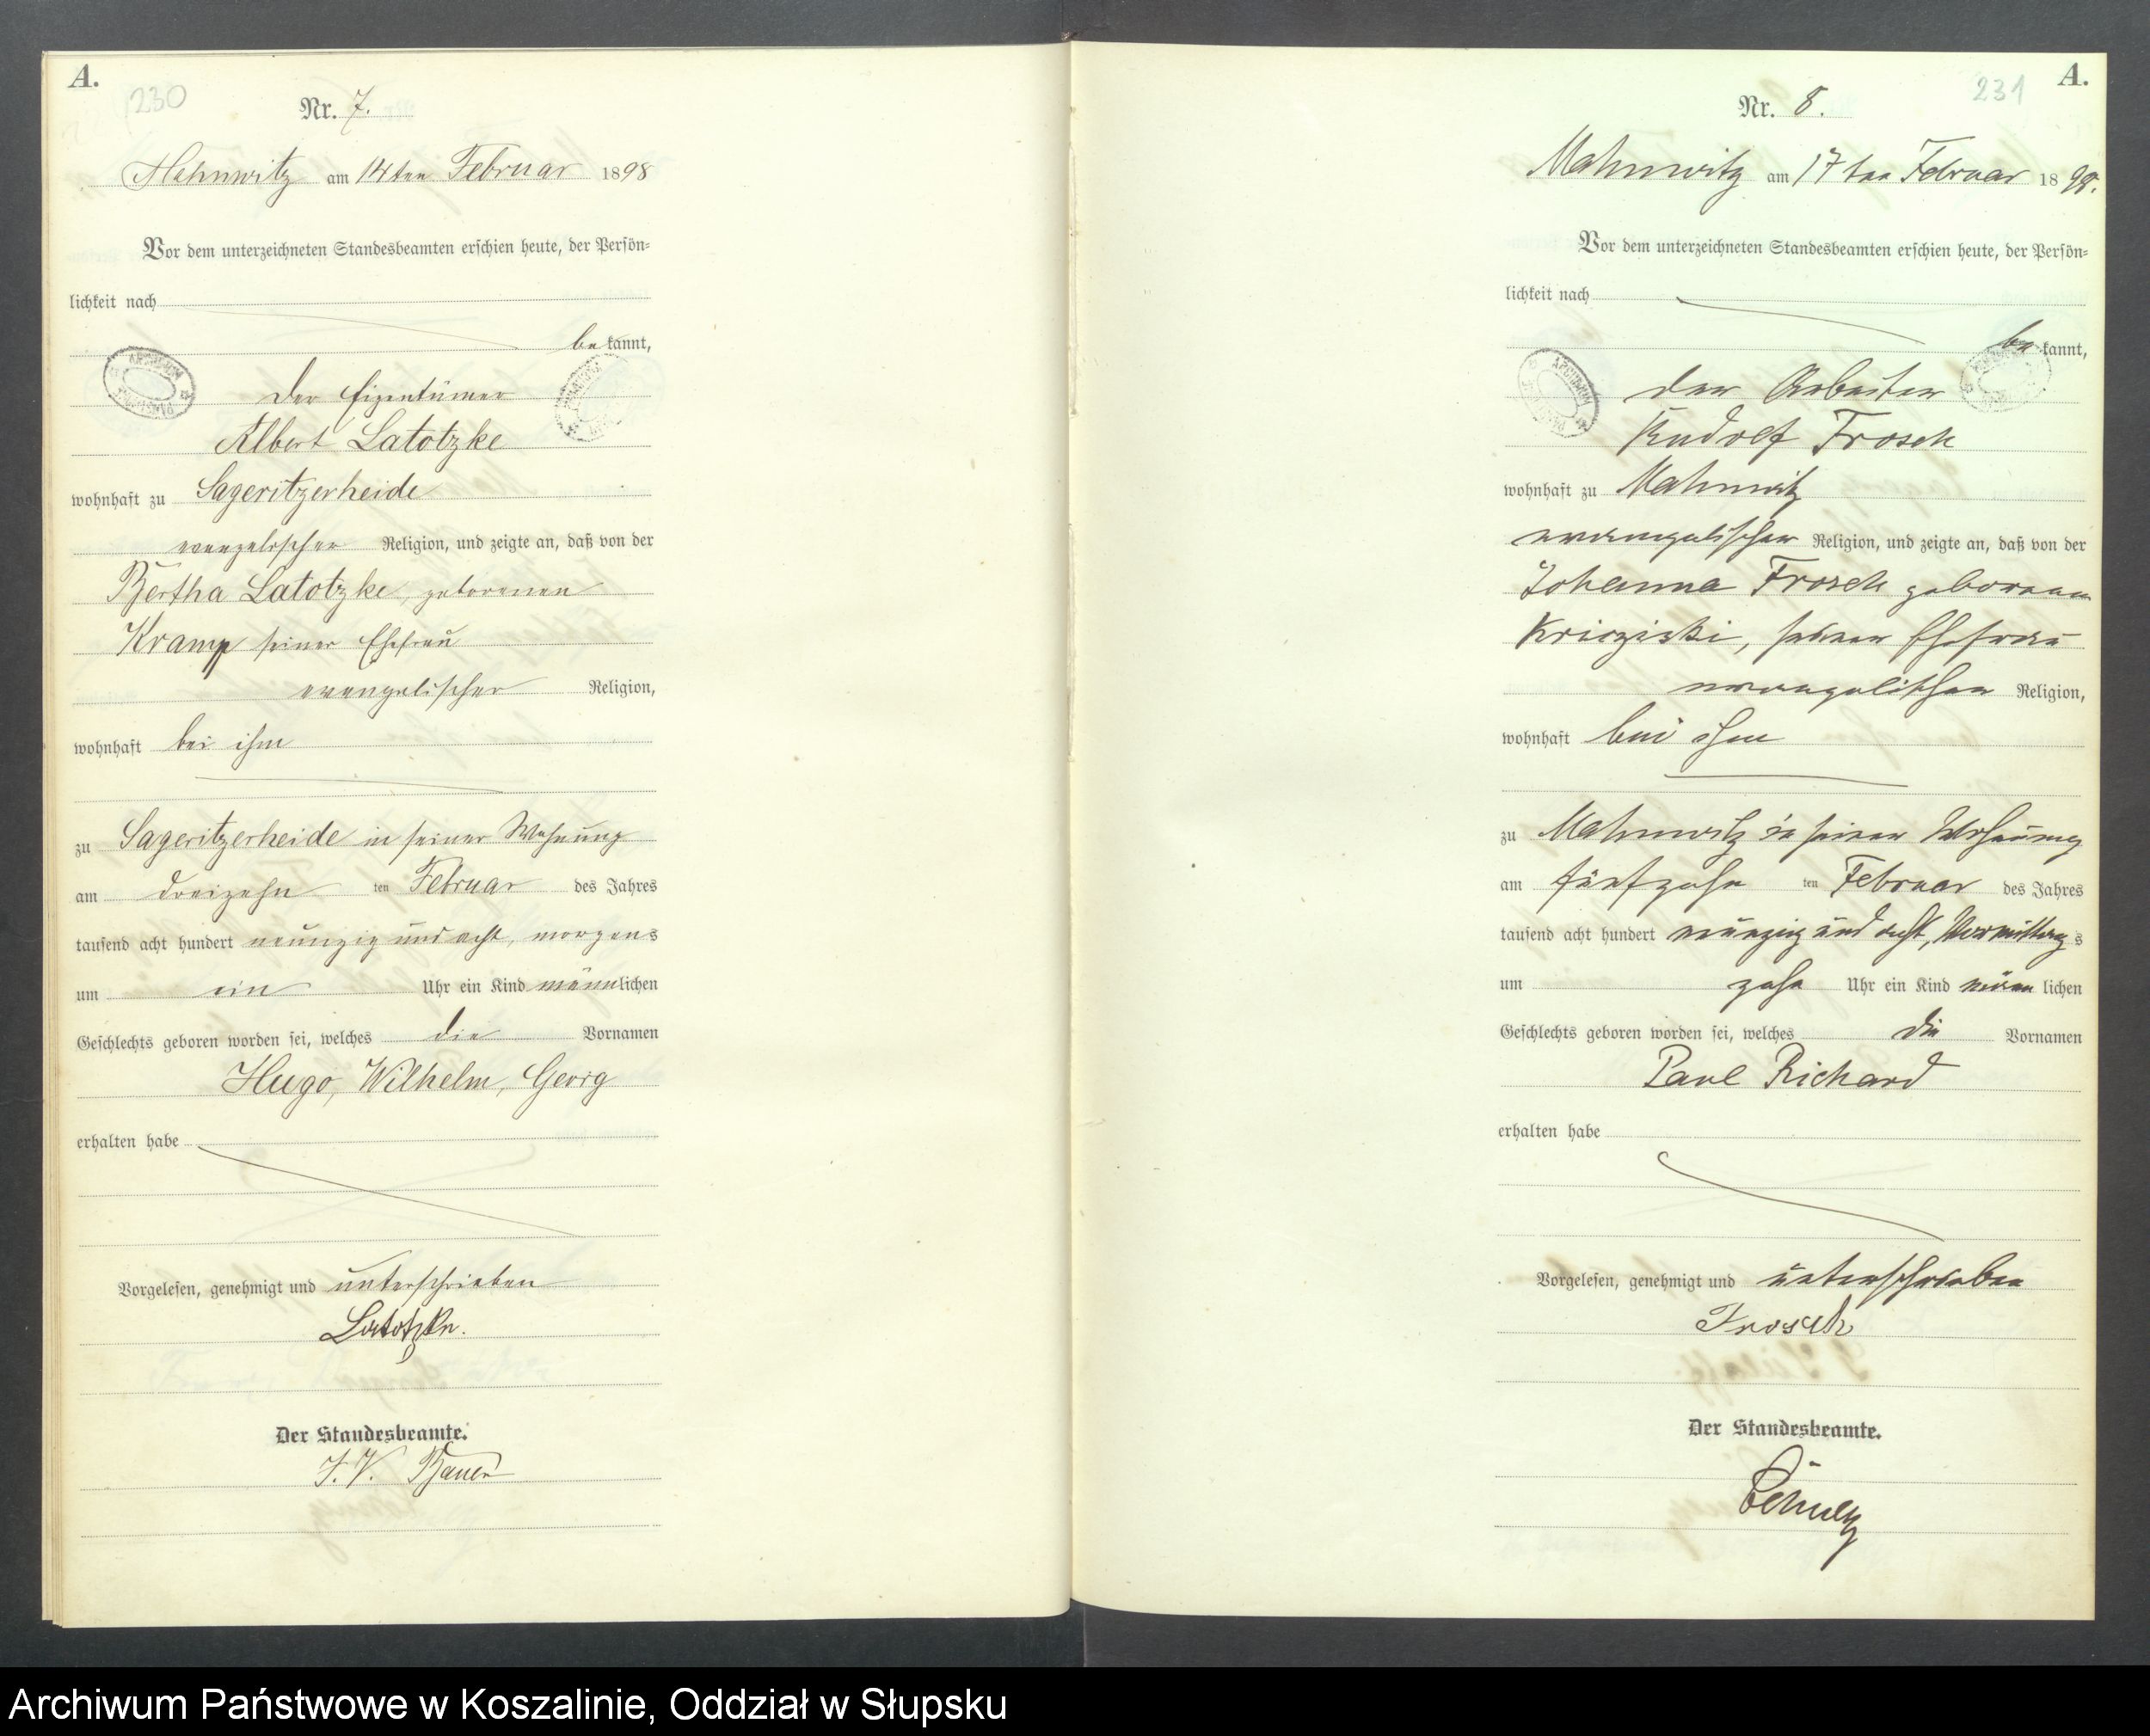 A.
230
Nr. 7.
Mahnwitz am 14ten Februar 1898
Vor dem unterzeichneten Standesbeamten erschien heute, der Persön-
lichkeit nach
bekannt,
der Eigentümer
Albert Latotzke
wohnhaft zu Sageritzerheide
evangelischer Religion, und zeigte an, daß von der
Bertha Latotzke, geborenen
Kramp seiner Ehefrau
evangelischer Religion,
wohnhaft bei ihm
zu Sageritzerheide in seiner Wohnung
am dreizehn ten Februar des Jahres
tausend acht hundert neunzig und acht, morgens
um ein Uhr ein Kind männlichen
Geschlechts geboren worden sei, welches die Vornamen
Hugo, Wilhelm, Georg
erhalten habe
Vorgelesen, genehmigt und unterschrieben
Latotzke.
Der Standesbeamte.
J. V. Bauer
231
A.
Nr. 8.
Mahnwitz am 17ten Februar 1898.
Vor dem unterzeichneten Standesbeamten erschien heute, der Persön-
lichkeit nach
bekannt,
der Arbeiter
Rudolf Frosch
wohnhaft zu Mahnwitz
evangelischer Religion, und zeigte an, daß von der
Johanna Frosch geborenen
Kricziski, seiner Ehefrau
evangelischer Religion,
wohnhaft bei ihm
zu Mahnwitz in seiner Wohnung
am fünfzehn ten Februar des Jahres
tausend acht hundert neunzig und acht, Vormittags
um zehn Uhr ein Kind männlichen
Geschlechts geboren worden sei, welches die Vornamen
Paul Richard
erhalten habe
Vorgelesen, genehmigt und unterschrieben
Frosch
Der Standesbeamte.
Schultz
Archiwum Państwowe w Koszalinie, Oddział w Słupsku